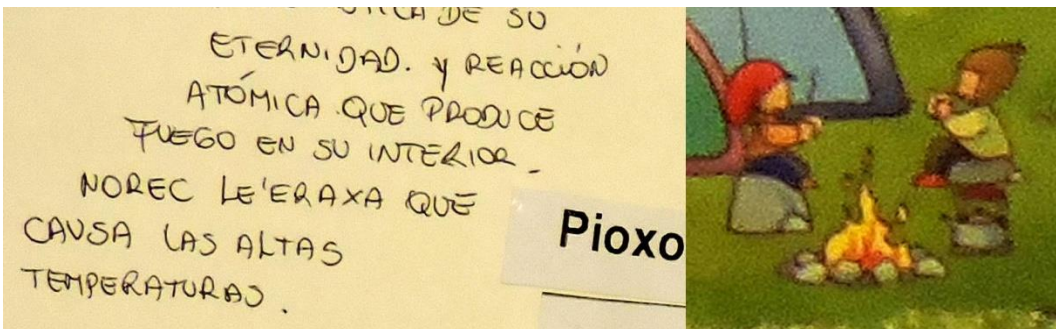 DE SU
ETERNIDAD. Y REACCIÓN
ATÓMICA QUE PRODUCE
FUEGO EN SU INTERIOR_
NOREC LE'ERAXA QUE
CAUSA LAS ALTAS
TEMPERATURAS.
Pioxo